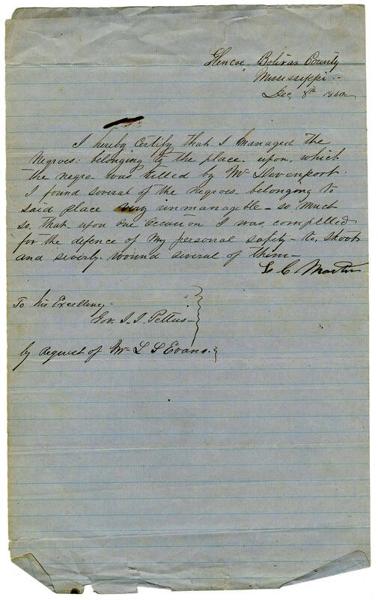 Glencoe, Bolivar County
Mississippi -
Dec. 8th 1860
I hereby Certify that I managed the
Negroes belonging to the place upon which
the negro was killed by Mr Devenport.
I found several of the negroes belonging to
said place very unmanagable - so much
so that upon one occasion I was compelled
for the defence of my personal safety to shoot
and severly wound several of them -
C Martin
To his Excellency
Gov. J. J. Pettus -
by Request of Mr L S Evans.